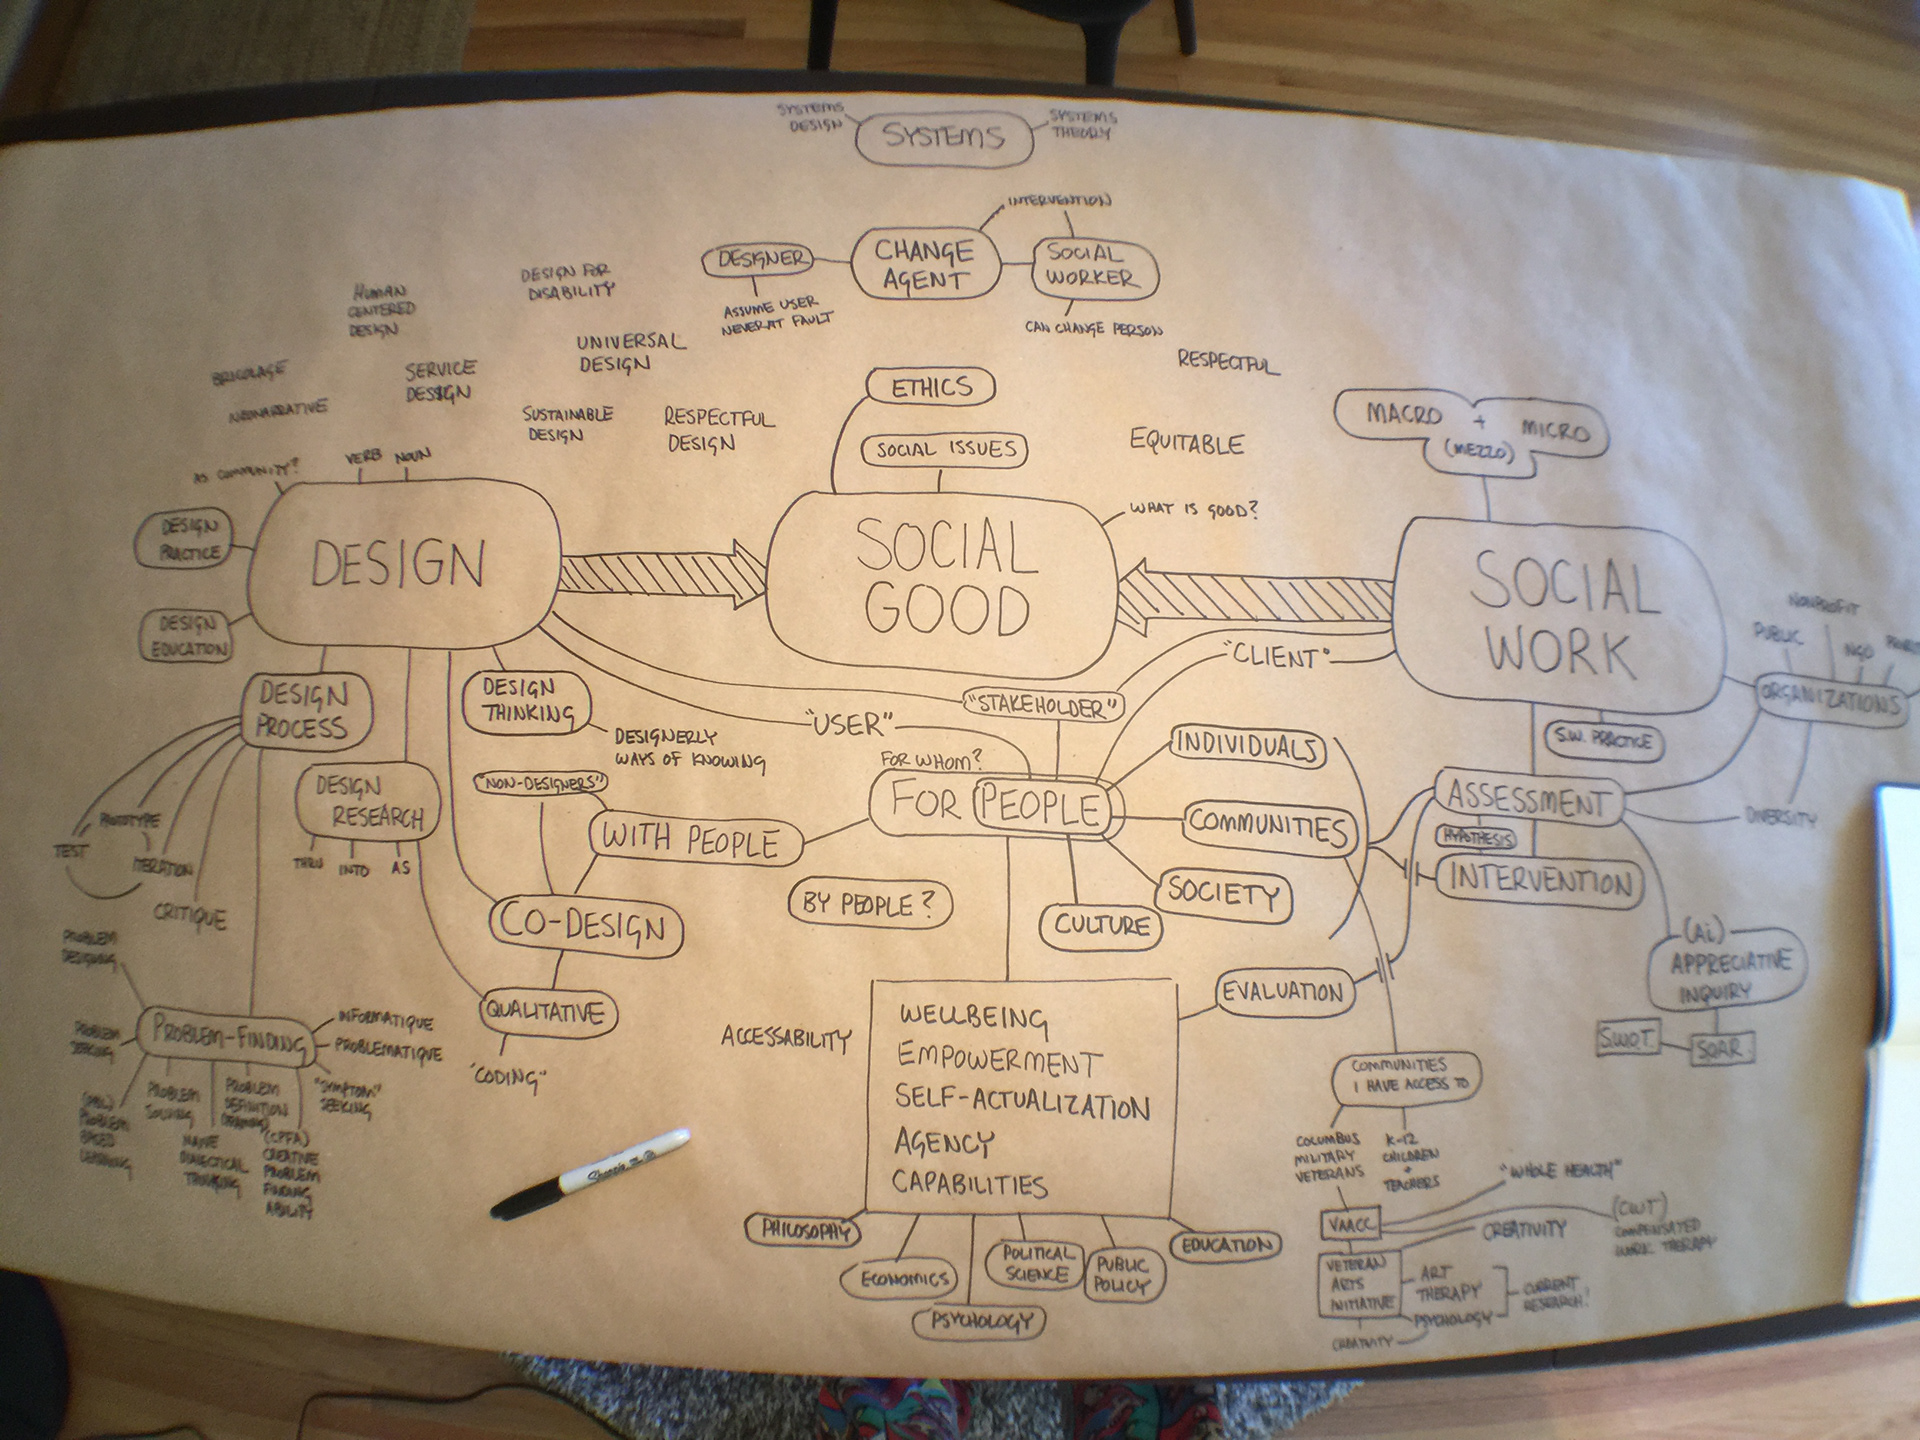 SYSTEMS
DESIGN
SYSTEMS
SYSTEMS
THEORY
INTERVENTION
DESIGNER
CHANGE
AGENT
SOCIAL
WORKER
ASSUME USER
NEVER AT FAULT
CAN CHANGE PERSON
HUMAN
CENTERED
DESIGN
DESIGN FOR
DISABILITY
UNIVERSAL
DESIGN
BRICOLAGE
SERVICE
DESIGN
NEONARRATIVE
SUSTAINABLE
DESIGN
RESPECTFUL
DESIGN
ETHICS
SOCIAL ISSUES
RESPECTFUL
EQUITABLE
WHAT IS GOOD?
MACRO + MICRO
(MEZZO)
AS COMMUNITY?
VERB
NOUN
DESIGN
PRACTICE
DESIGN
EDUCATION
DESIGN
SOCIAL
GOOD
SOCIAL
WORK
NONPROFIT
PUBLIC
NGO
ORGANIZATIONS
S.W. PRACTICE
DIVERSITY
DESIGN
PROCESS
DESIGN
THINKING
DESIGNERLY
WAYS OF KNOWING
"USER"
"STAKEHOLDER"
"CLIENT"
DESIGN
RESEARCH
THRU
INTO
AS
PROTOTYPE
TEST
ITERATION
CRITIQUE
"NON-DESIGNERS"
WITH PEOPLE
FOR WHOM?
FOR PEOPLE
BY PEOPLE?
INDIVIDUALS
COMMUNITIES
SOCIETY
CULTURE
ASSESSMENT
HYPOTHESIS
INTERVENTION
EVALUATION
(Ai)
APPRECIATIVE
INQUIRY
S.W.O.T.
SOAR.
CO-DESIGN
QUALITATIVE
"CODING"
PROBLEM
DESIGNING
PROBLEM
SEEKING
PROBLEM-FINDING
INFORMATIQUE
PROBLEMATIQUE
"SYMPTOM"
SEEKING
(PBL)
PROBLEM
BASED
LEARNING
PROBLEM
SOLVING
PROBLEM
DEFINITION
(FRAMING)
DIALECTICAL
THINKING
(CPFA)
CREATIVE
PROBLEM
FINDING
ABILITY
ACCESSABILITY
WELLBEING
EMPOWERMENT
SELF-ACTUALIZATION
AGENCY
CAPABILITIES
PHILOSOPHY
ECONOMICS
PSYCHOLOGY
POLITICAL
SCIENCE
PUBLIC
POLICY
EDUCATION
COMMUNITIES
I HAVE ACCESS TO
COLUMBUS
MILITARY
VETERANS
K-12
CHILDREN
+
TEACHERS
"WHOLE HEALTH"
VAACC
CREATIVITY
(CWT)
COMPENSATED
WORK THERAPY
VETERAN
ARTS
INITIATIVE
ART
THERAPY
PSYCHOLOGY
CURRENT
RESEARCH!
CREATIVITY
Sharpie